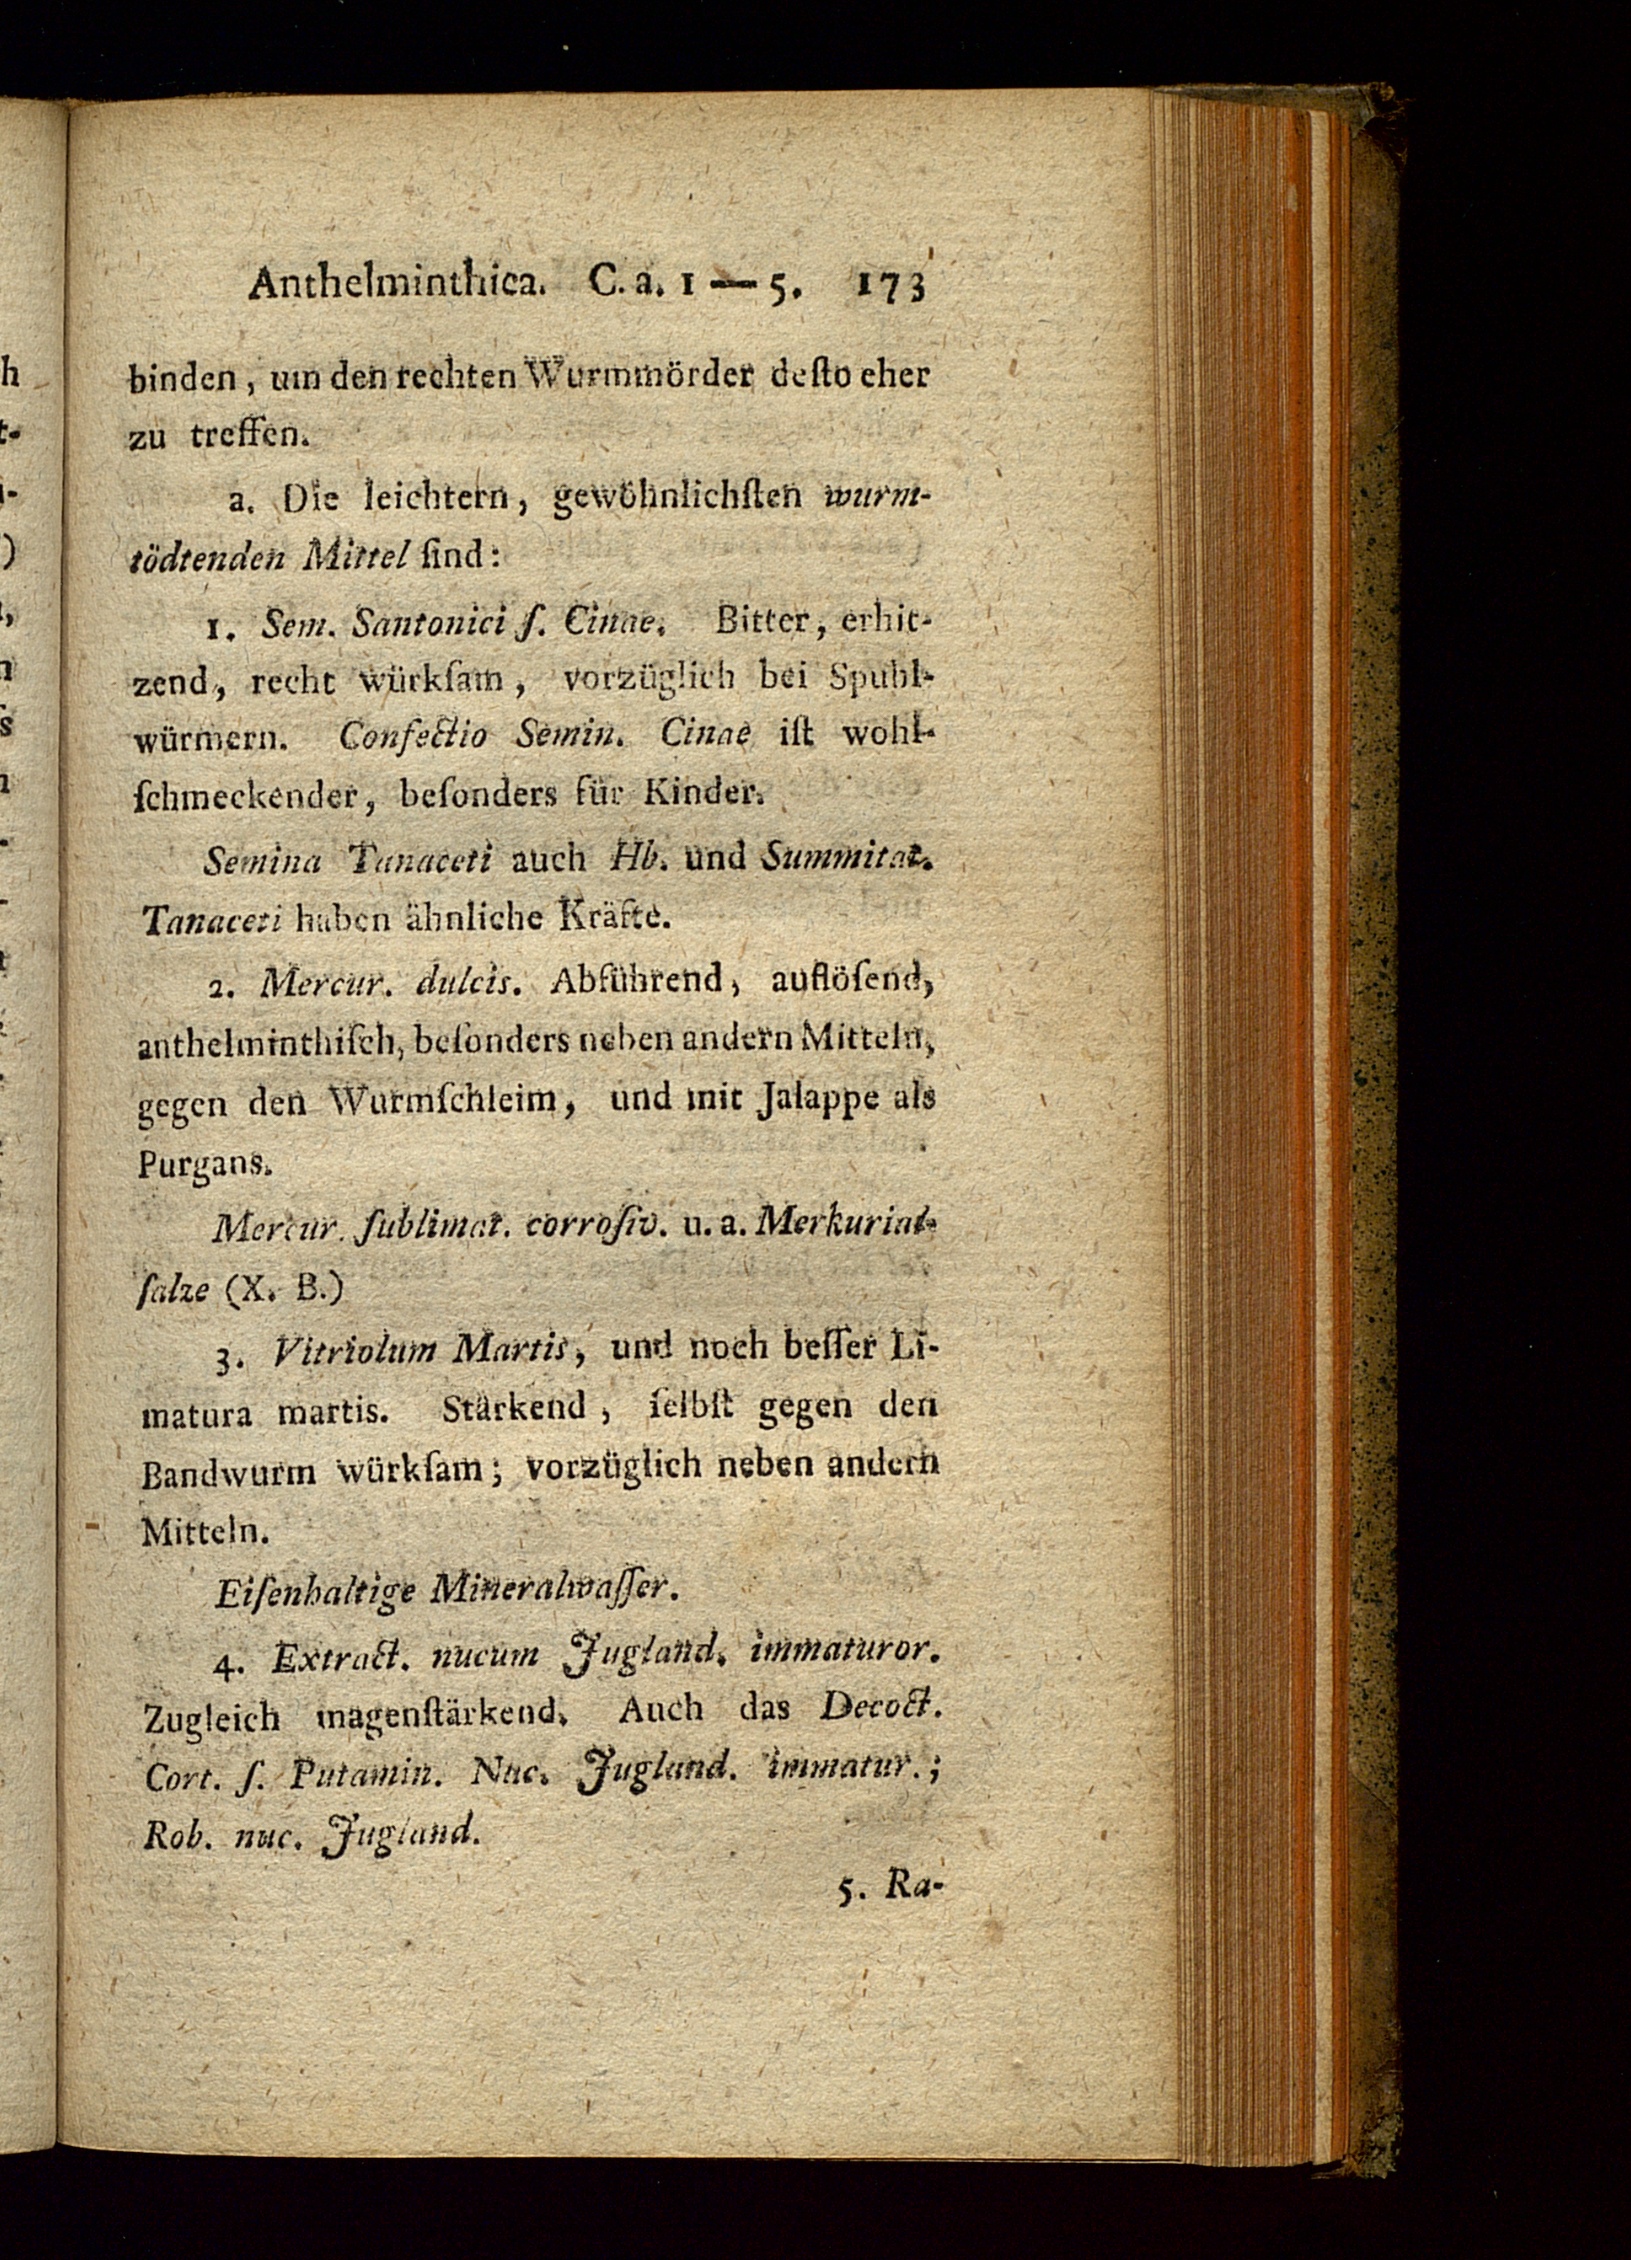 Anthelminthica. C. a. 1 — 5. 173
binden, um den rechten Wurmmörder deſto eher
zu treffen.
a. Die leichtern, gewöhnlichſten wurm-
tödtenden Mittel ſind:
1. Sem. Santonici ſ. Cinae. Bitter, erhit-
zend, recht würkſam, vorzüglich bei Spuhl-
würmern. Confectio Semin. Cinae iſt wohl-
ſchmeckender, beſonders für Kinder.
Semina Tanaceti auch Hb. und Summitat.
Tanaceti haben ähnliche Kräfte.
2. Mercur. dulcis. Abführend, auflöſend,
anthelminthiſch, beſonders neben andern Mitteln,
gegen den Wurmſchleim, und mit Jalappe als
Purgans.
Mercur. ſublimat. corroſiv. u. a. Merkurial-
ſalze (X. B.)
3. Vitriolum Martis, und noch beſſer Li-
matura martis. Stärkend, ſelbſt gegen den
Bandwurm würkſam; vorzüglich neben andern
Mitteln.
Eiſenhaltige Mineralwaſſer.
4. Extract. nucum Jugland. immaturor.
Zugleich magenſtärkend. Auch das Decoct.
Cort. ſ. Putamin. Nuc. Jugland. immatur.;
Rob. nuc. Jugland.
5. Ra-